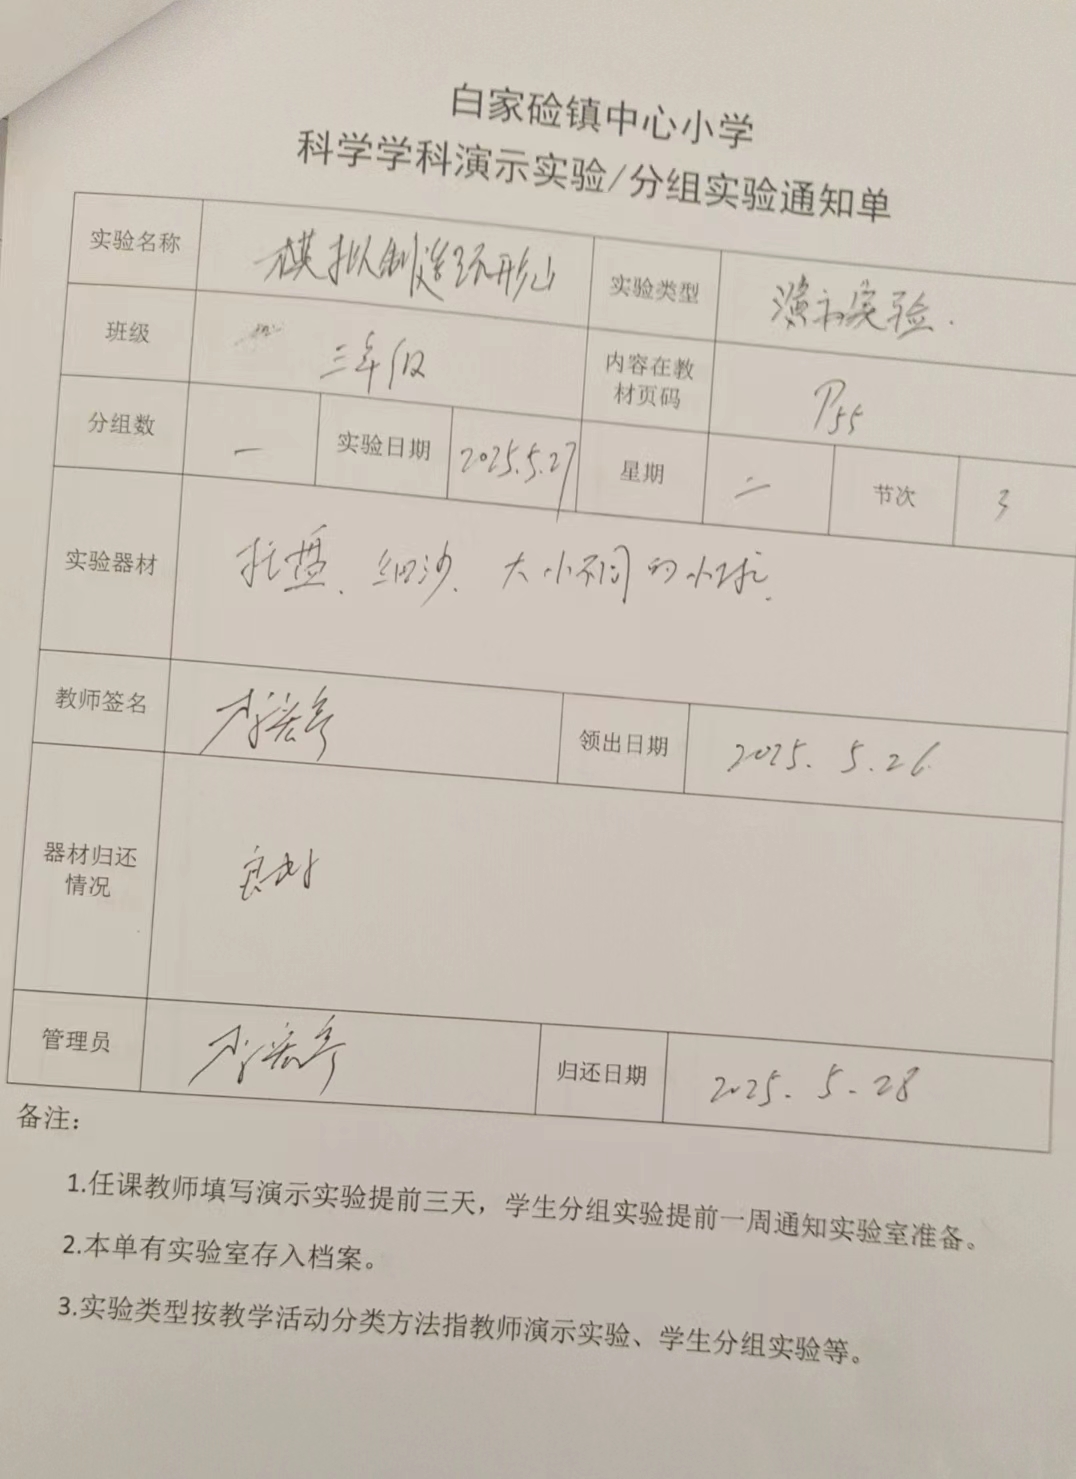 白家硷镇中心小学
科学学科演示实验/分组实验通知单
实验名称 模拟制造环形山 实验类型 演示实验.
班级 三年级 内容在教材页码 P55
分组数 一 实验日期 2025.5.27 星期 二 节次 3
实验器材 托盘、细沙、大小不同的小球.
教师签名 领出日期 2025.5.26
器材归还情况 良好
管理员 归还日期 2025.5.28
备注：
1.任课教师填写演示实验提前三天，学生分组实验提前一周通知实验室准备。
2.本单有实验室存入档案。
3.实验类型按教学活动分类方法指教师演示实验、学生分组实验等。